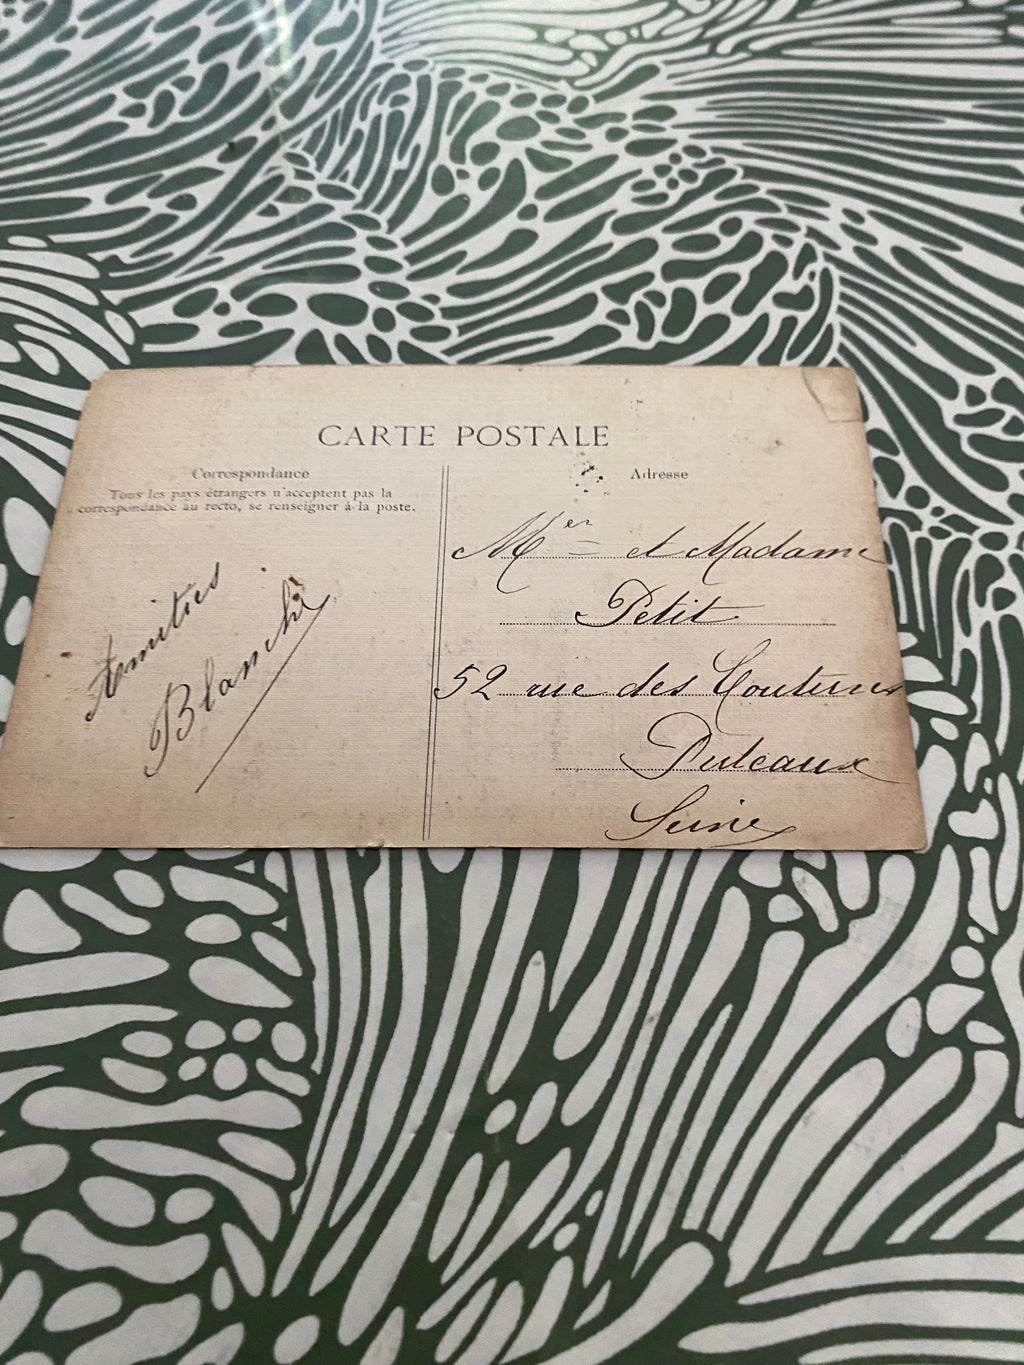 CARTE POSTALE
Correspondance
Tous les pays étrangers n'acceptent pas la
correspondance au recto, se renseigner à la poste.
Amitiés
Blanche
Adresse
Mer et Madame
Petit
52 rue des
Puteaux
Seine